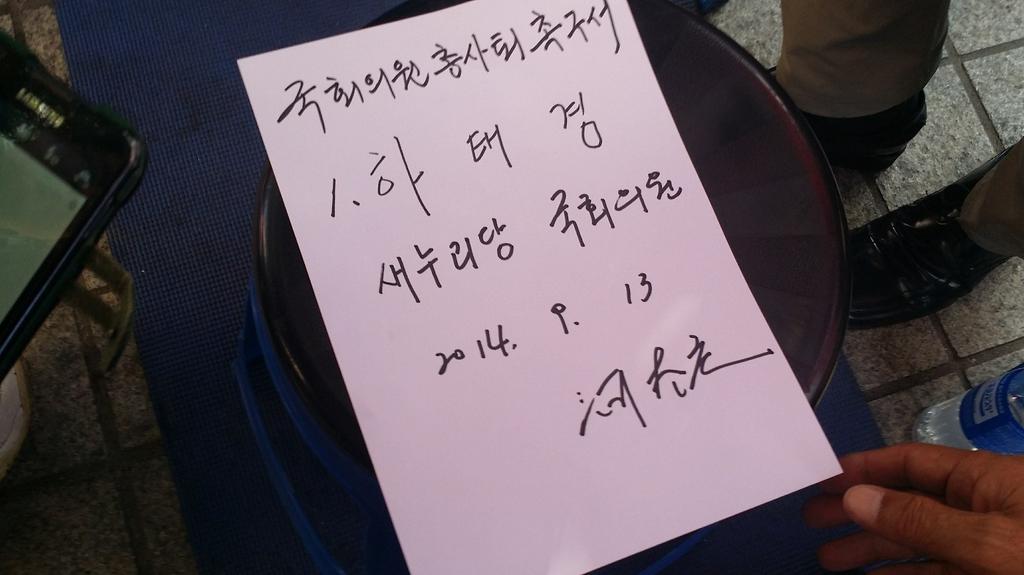 국회의원 총사퇴 촉구서
1. 하 태 경
새누리당 국회의원
2014. 9. 13